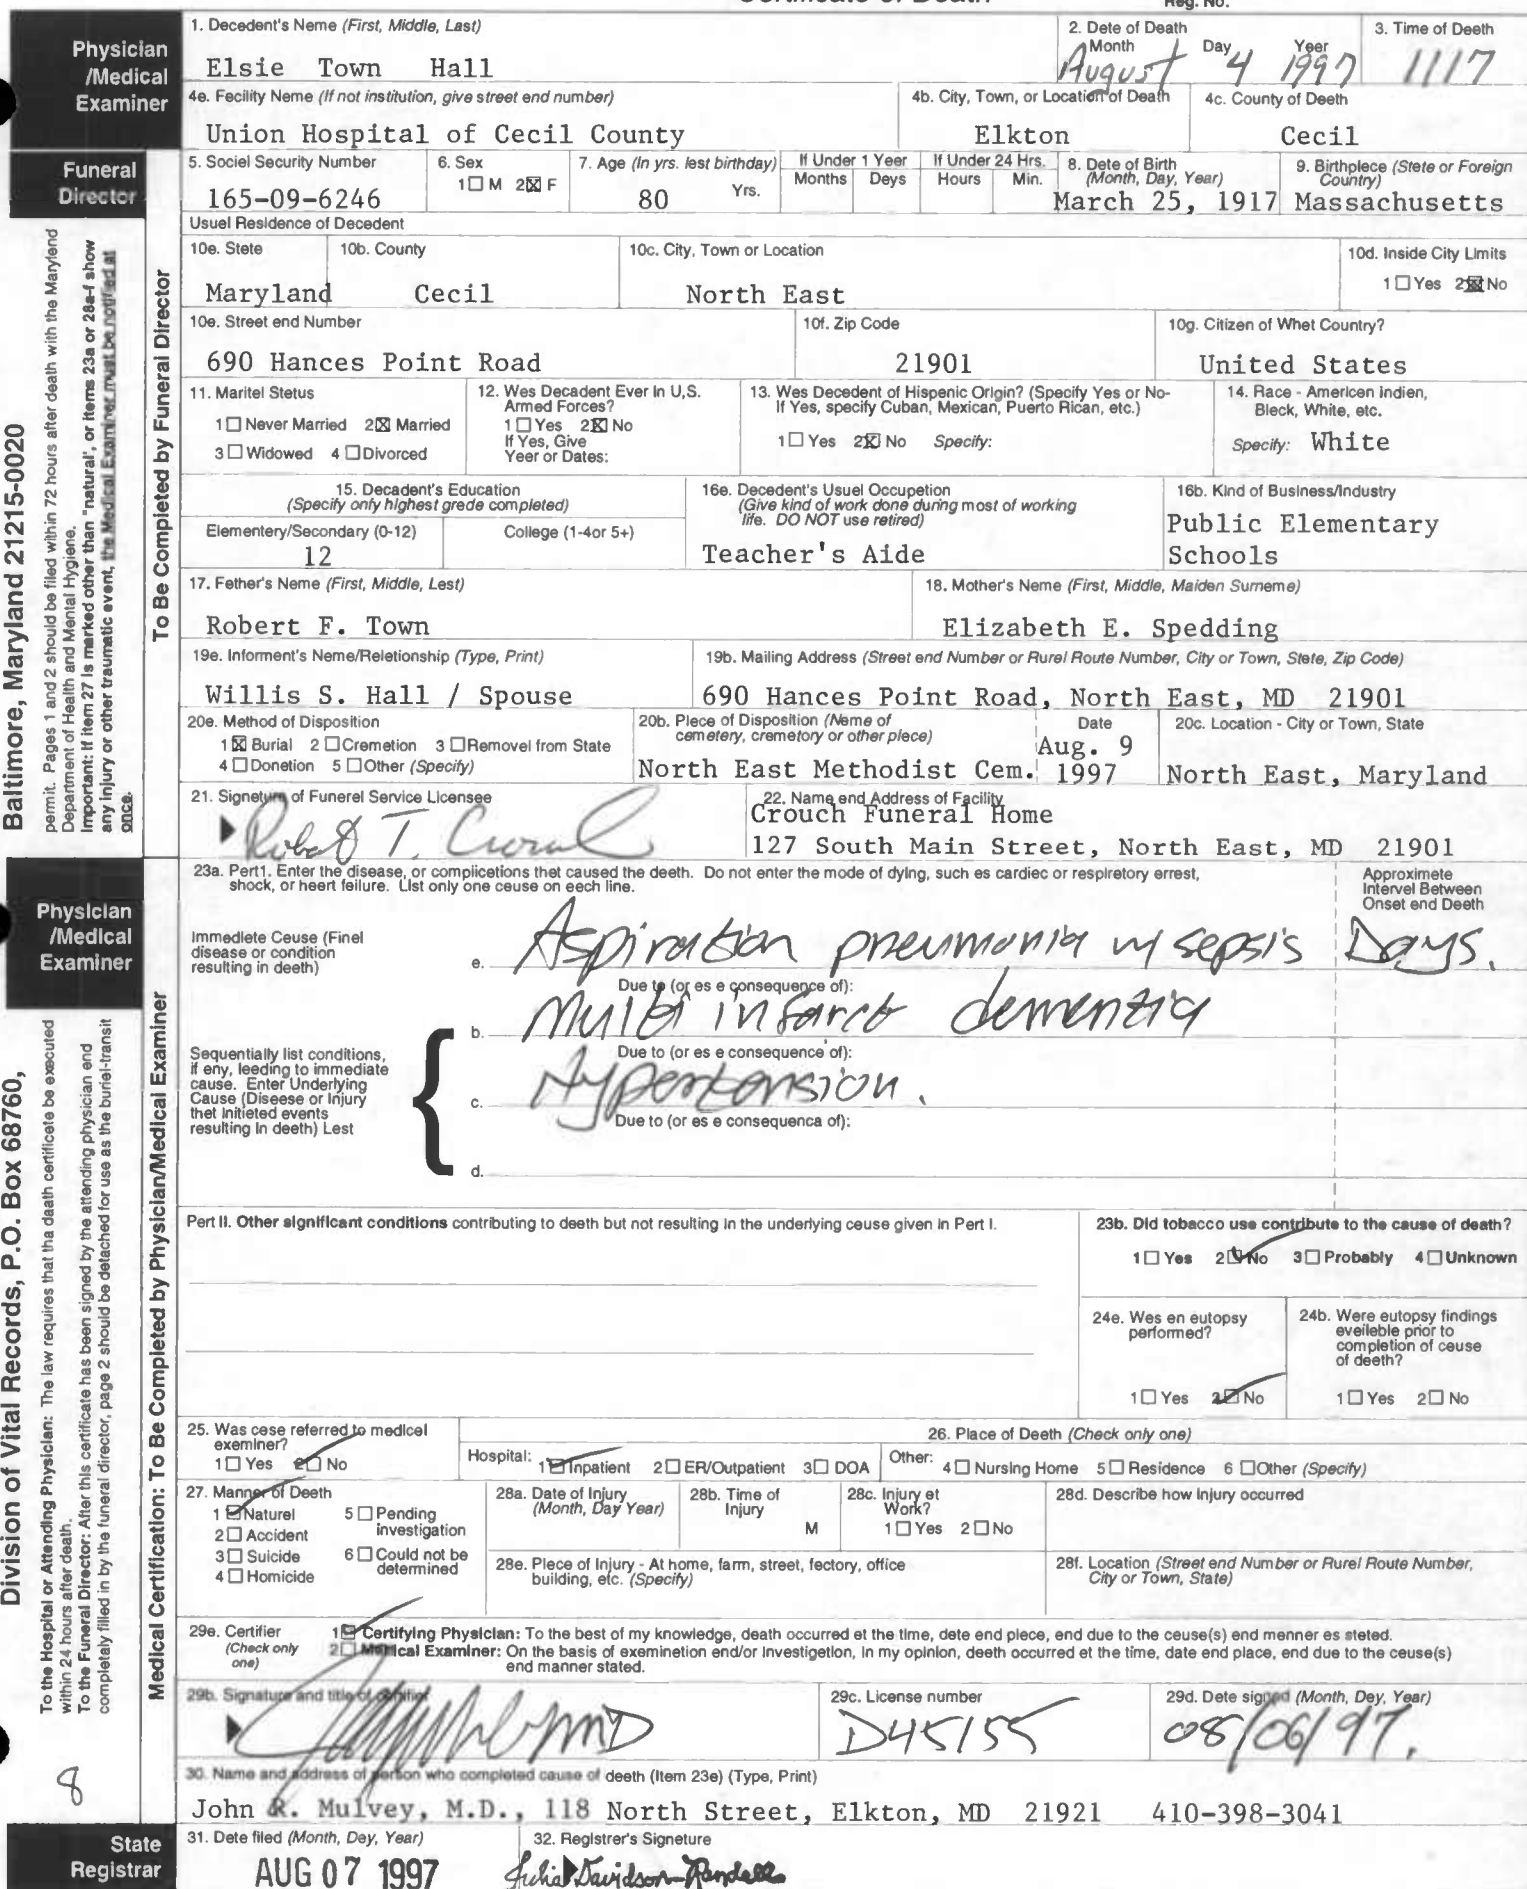 Reg. No.
Physician
/Medical
Examiner
1. Decedent's Name (First, Middle, Last)
Elsie Town Hall
2. Dete of Death
Month Day Year
August 4 1997
3. Time of Deeth
1117
4e. Fecility Name (If not institution, give street end number)
Union Hospital of Cecil County
4b. City, Town, or Location of Death
Elkton
4c. County of Death
Cecil
Funeral
Director
5. Sociel Security Number
165-09-6246
6. Sex
1☐ M 2☒ F
7. Age (In yrs. lest birthday)
80 Yrs.
If Under 1 Year
Months Deys
If Under 24 Hrs.
Hours Min.
8. Dete of Birth
(Month, Day, Year)
March 25, 1917
9. Birthplece (Stete or Foreign
Country)
Massachusetts
Usuel Residence of Decedent
10e. Stete
Maryland
10b. County
Cecil
10c. City, Town or Location
North East
10d. Inside City Limits
1☐ Yes 2☒ No
10e. Street end Number
690 Hances Point Road
10f. Zip Code
21901
10g. Citizen of Whet Country?
United States
11. Maritel Stetus
1☐ Never Married 2☒ Married
3☐ Widowed 4☐ Divorced
12. Wes Decadent Ever In U,S.
Armed Forces?
1☐ Yes 2☒ No
If Yes, Give
Yeer or Dates:
13. Wes Decedent of Hispenic Origin? (Specify Yes or No-
If Yes, specify Cuban, Mexican, Puerto Rican, etc.)
1☐ Yes 2☒ No Specify:
14. Race - Americen Indien,
Bleck, White, etc.
Specify: White
15. Decadent's Education
(Specify only highest grede completed)
Elementery/Secondary (0-12)
12
College (1-4or 5+)
16e. Decedent's Usuel Occupetion
(Give kind of work done during most of working
life. DO NOT use retired)
Teacher's Aide
16b. Kind of Business/Industry
Public Elementary
Schools
17. Fether's Name (First, Middle, Lest)
Robert F. Town
18. Mother's Name (First, Middle, Maiden Surneme)
Elizabeth E. Spedding
19e. Informent's Neme/Reletionship (Type, Print)
Willis S. Hall / Spouse
19b. Mailing Address (Street end Number or Rurel Route Number, City or Town, Stete, Zip Code)
690 Hances Point Road, North East, MD 21901
20e. Method of Disposition
1☒ Burial 2☐ Cremetion 3☐ Removel from State
4☐ Donetion 5☐ Other (Specify)
20b. Plece of Disposition (Neme of
cemetery, cremetory or other plece)
North East Methodist Cem.
Date
Aug. 9
1997
20c. Location - City or Town, State
North East, Maryland
21. Signeture of Funerel Service Licensee
Robert T. Crouch
22. Name end Address of Facility
Crouch Funeral Home
127 South Main Street, North East, MD 21901
To Be Completed by Funeral Director
Baltimore, Maryland 21215-0020
permit. Pages 1 and 2 should be filed within 72 hours after death with the Marylend
Department of Health and Mental Hygiene.
Important: If item 27 is marked other than "natural", or items 23a or 28a-f show
any injury or other traumatic event, the Medical Examiner must be notified at
once.
Physician
/Medical
Examiner
23a. Part1. Enter the disease, or complicetions thet caused the deeth. Do not enter the mode of dying, such es cardiec or respiretory errest,
shock, or heert feilure. List only one ceuse on eech line.
Approximete
Intervel Between
Onset end Deeth
Immediete Ceuse (Finel
disease or condition
resulting in death)
e. Aspiration pneumonia w/ sepsis Days.
Due to (or es e consequence of):
b. Multi infarct dementia
Due to (or es e consequence of):
c. Hypertension.
Due to (or es e consequenca of):
d.
Sequentially list conditions,
if eny, leeding to immediate
cause. Enter Underlying
Cause (Diseese or Injury
thet Initieted events
resulting In deeth) Lest
Part II. Other significant conditions contributing to deeth but not resulting in the underlying ceuse given in Pert I.
23b. Did tobacco use contribute to the cause of death?
1☐ Yes 2☑ No 3☐ Probably 4☐ Unknown
24e. Wes en eutopsy
performed?
1☐ Yes 2☑ No
24b. Were eutopsy findings
eveileble prior to
completion of ceuse
of deeth?
1☐ Yes 2☐ No
25. Was cese referred to medicel
exeminer?
1☐ Yes 2☑ No
26. Place of Deeth (Check only one)
Hospital: 1☑ Inpatient 2☐ ER/Outpatient 3☐ DOA
Other: 4☐ Nursing Home 5☐ Residence 6☐ Other (Specify)
27. Manner of Deeth
1☑ Naturel
2☐ Accident
3☐ Suicide
4☐ Homicide
5☐ Pending
investigation
6☐ Could not be
determined
28a. Date of Injury
(Month, Day Year)
28b. Time of
Injury
M
28c. Injury et
Work?
1☐ Yes 2☐ No
28d. Describe how Injury occurred
28e. Plece of Injury - At home, farm, street, fectory, office
building, etc. (Specify)
28f. Location (Street end Number or Rurel Route Number,
City or Town, State)
29e. Certifier
(Check only
one)
1☑ Certifying Physician: To the best of my knowledge, death occurred et the tIme, dete end plece, end due to the ceuse(s) end menner es steted.
2☐ Medical Examiner: On the basis of exeminetion end/or Investigetion, In my opinion, deeth occurred et the time, date end place, end due to the ceuse(s)
end manner stated.
29b. Signature and title of certifier
MD
29c. License number
D45155
29d. Dete signed (Month, Dey, Year)
08/06/97.
30. Name and address of person who completed cause of deeth (Item 23e) (Type, Print)
John R. Mulvey, M.D., 118 North Street, Elkton, MD 21921 410-398-3041
Medical Certification: To Be Completed by Physician/Medical Examiner
Division of Vital Records, P.O. Box 68760,
To the Hospital or Attending Physician: The law requires that tha daath certificete be executed
within 24 hours after death.
To the Funeral Director: After this certificate has been signed by the attending physician end
completely filled in by the funeral director, page 2 should be detached for use as the buriel-transit
8
State
Registrar
31. Dete filed (Month, Dey, Year)
AUG 07 1997
32. Registrer's Signeture
Julia Davidson-Randall